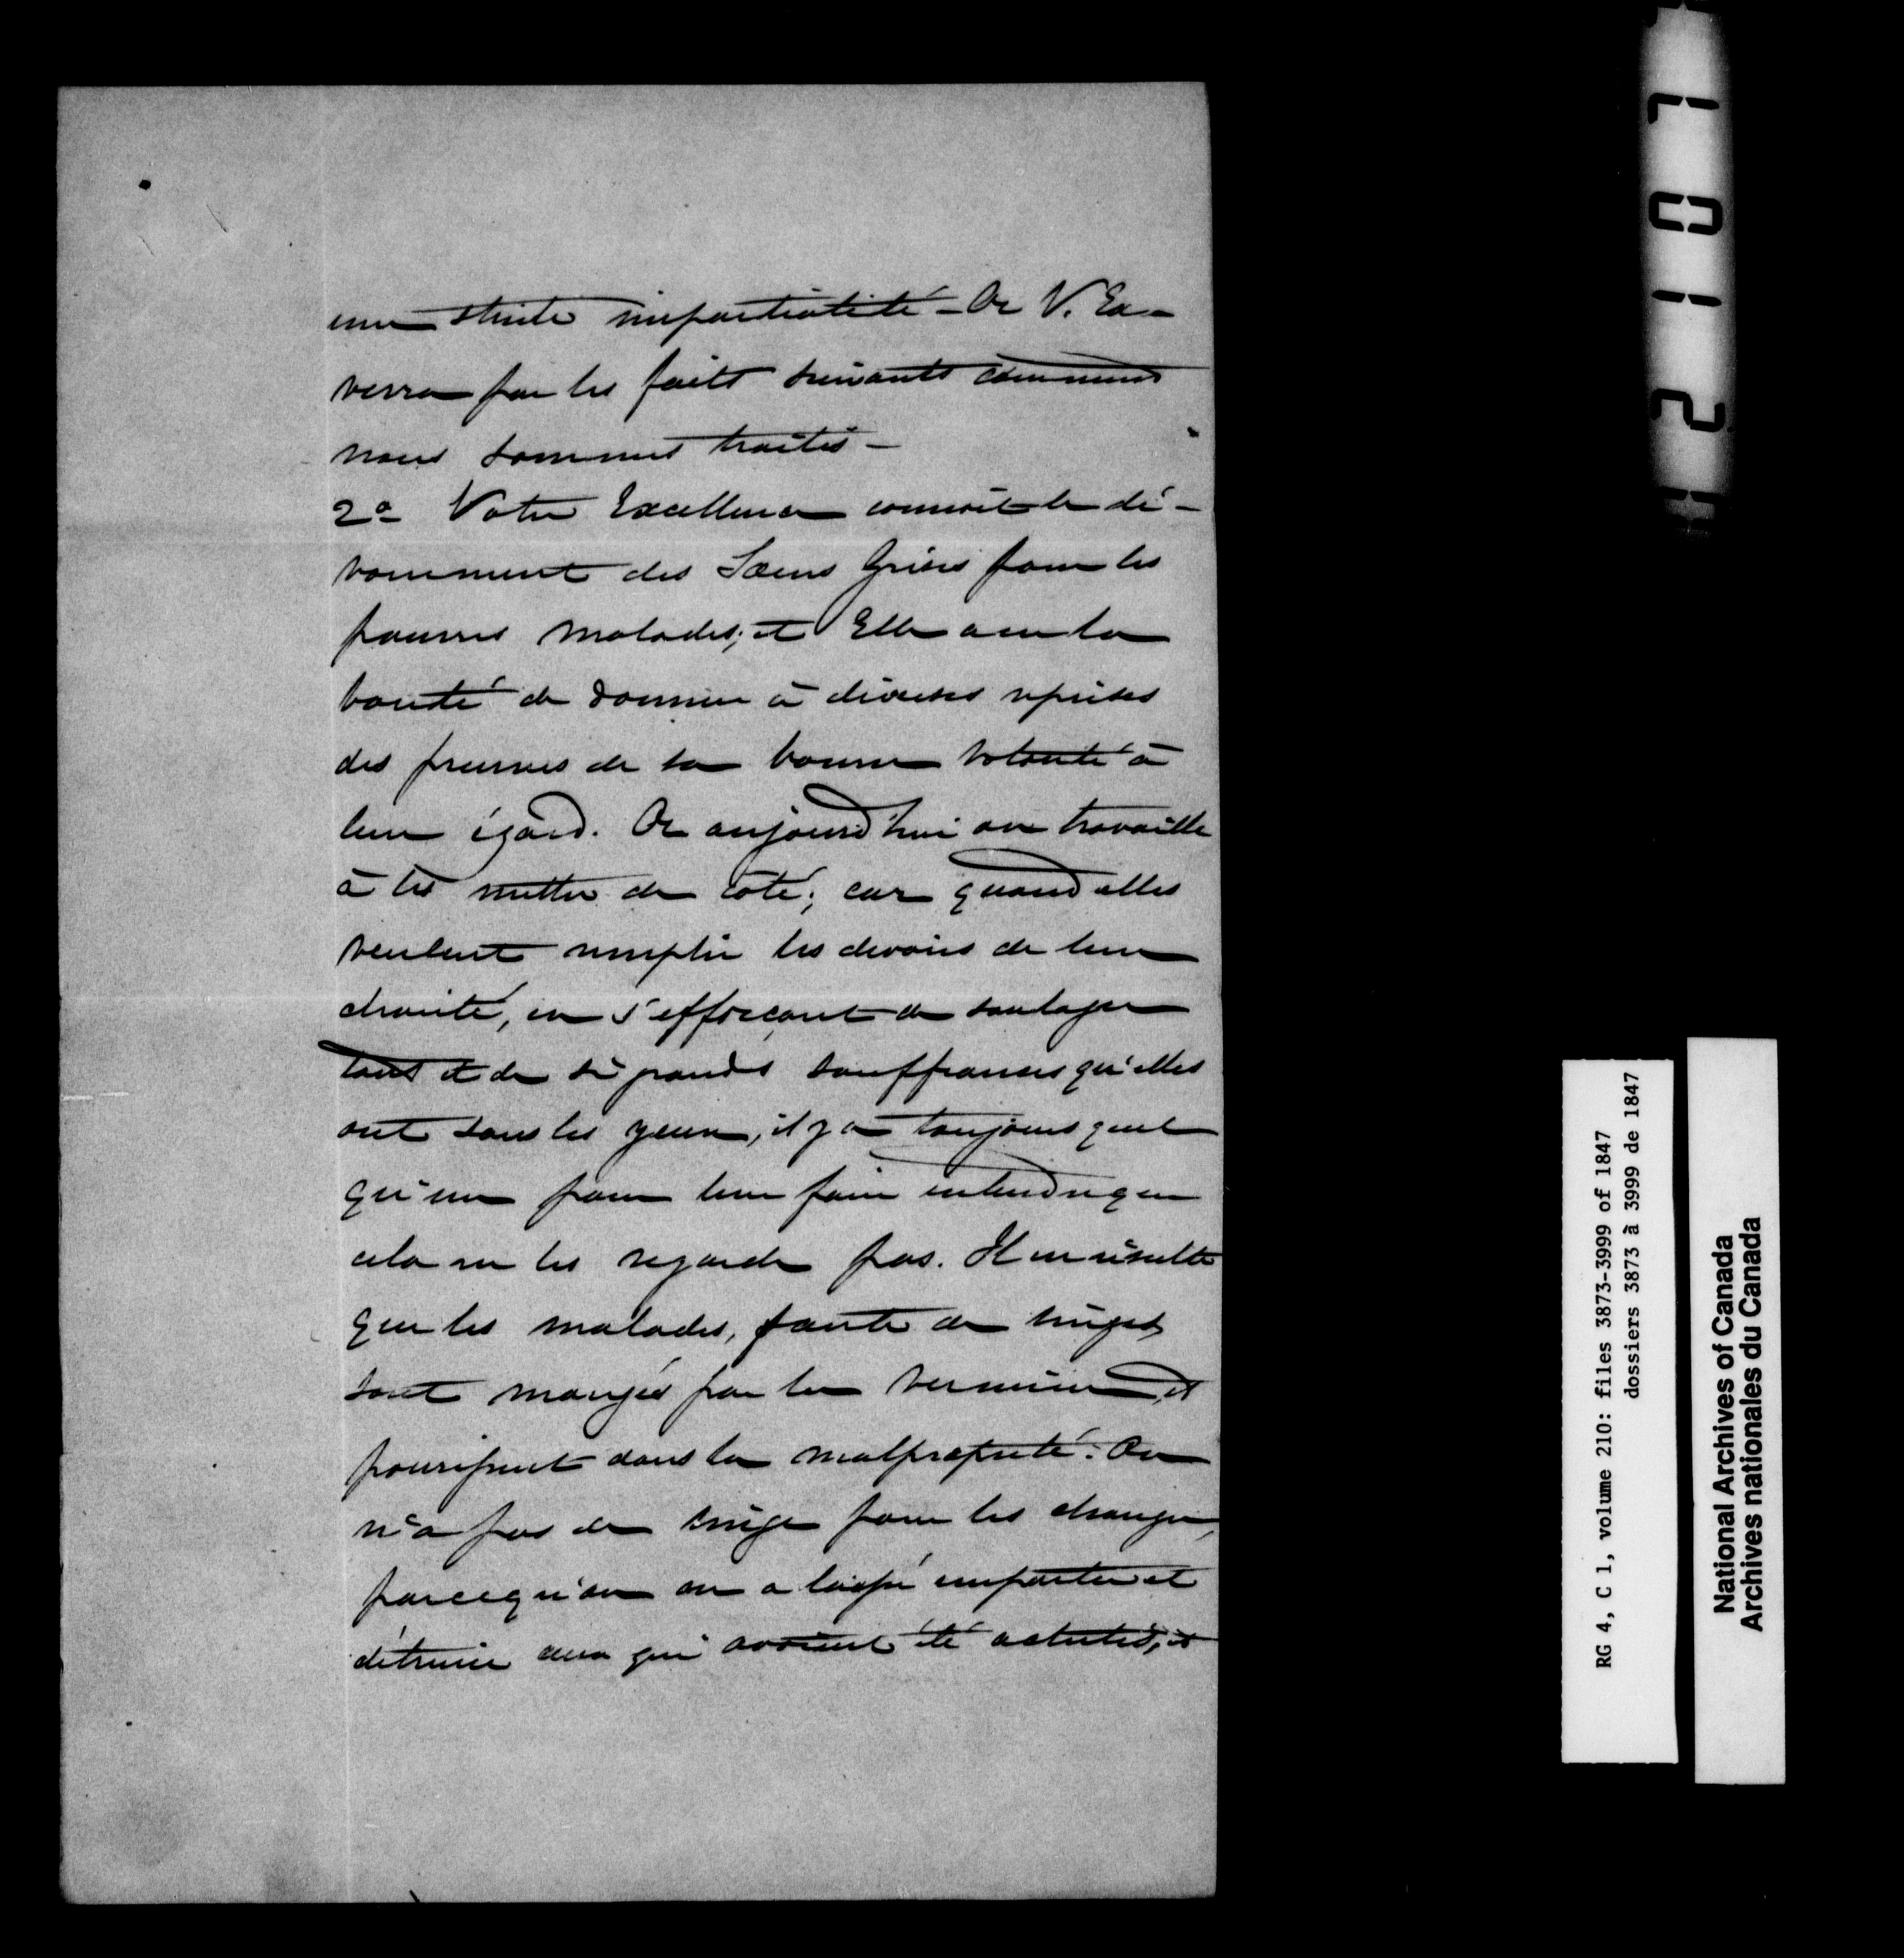 une stricte impartialité - Or V. Ex.
verra par les faits suivants comment
nous sommes traités -
2º Votre Excellence connoit le dé-
vouement des Sœurs Grises pour les
pauvres malades; et Elle a eu la
bonté de donner à diverses reprises
des preuves de sa bonne volonté à
leur égard. Or aujourd'hui on travaille
à les mettre de côté; car quand elles
veulent remplir les devoirs de leur
charité, en s'efforçant de soulager
tant et de si grandes souffrances qu'elles
ont sous les yeux, il y a toujours quel
qu'un pour leur faire entendre que
cela ne les regarde pas. Il en résulte
que les malades, faute de linges
sont mangés par la vermine, et
pourissent dans la malpropreté. On
n'a pas de linge pour les changer,
parcequ'on en a laissé emporter et
détruire ceux qui avoient été achetés, et
7012
RG 4, C 1, volume 210: files 3873-3999 of 1847
dossiers 3873 à 3999 de 1847
National Archives of Canada
Archives nationales du Canada